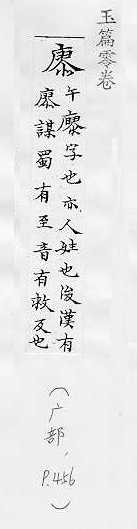 玉篇零卷
午字也亦人姓也後漢有
謀蜀有至音有救反也
（广部，P.456）